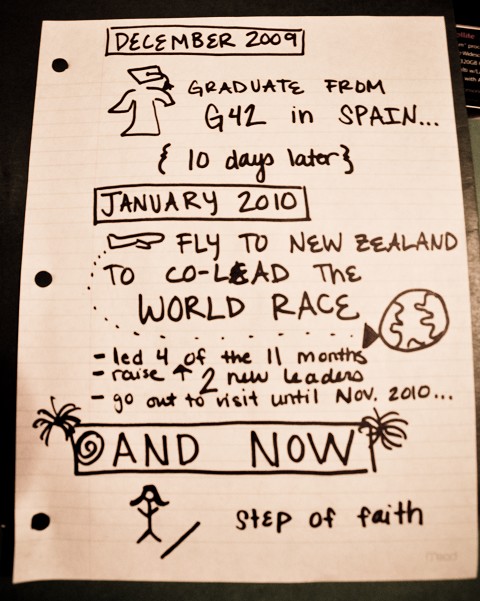 DECEMBER 2009
GRADUATE FROM
G42 in SPAIN...
{ 10 days later }
JANUARY 2010
FLY TO NEW ZEALAND
TO CO-LEAD THE
WORLD RACE
- led 4 of the 11 months
- raise ↑ 2 new leaders
- go out to visit until Nov. 2010...
AND NOW
STEP OF faith
mead